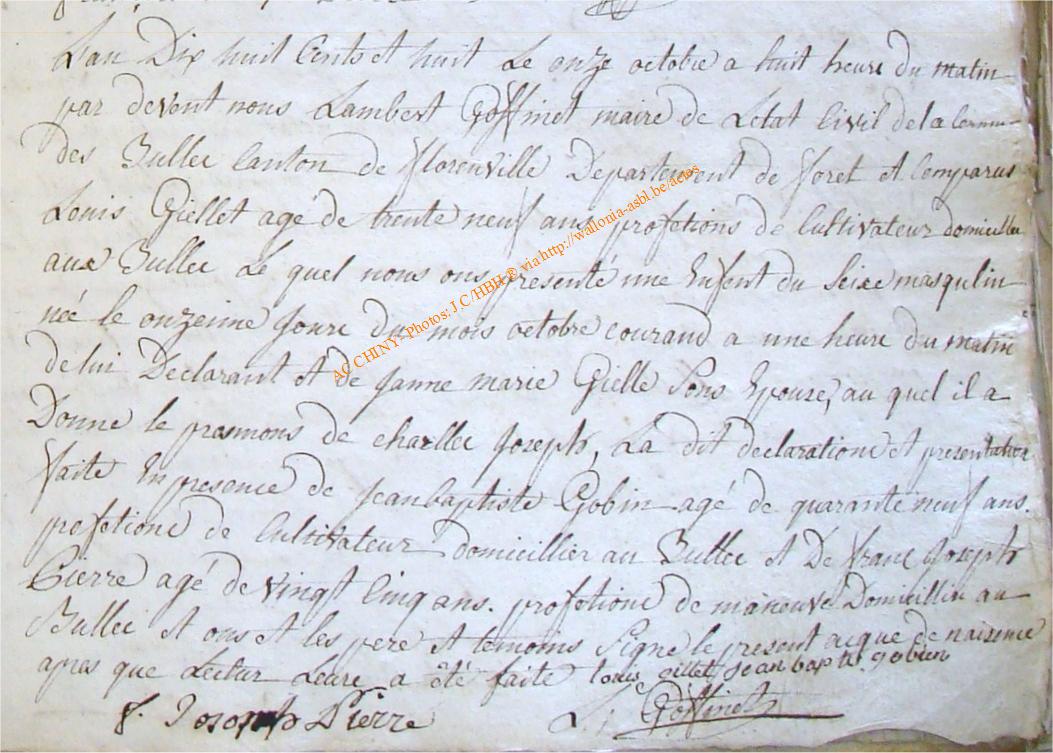 L'an Dix huit Cents et huit Le onze octobre a huit heure du matin
par devent nous Lambert Goffinet maire de Letat Civil de la Commu-
des Bullee Canton de florenville Departement de foret et Comparus
Louis Giellet agé de trente neuf ans profetions de Cultivateur domicillie
aux Bullee Le quel nous ons presenté une Enfent du Seixe masqulin
née le onzeime Jour du mois octobre courand a une heure du matin
de lui Declarant et de Janne marie Gielle Sons Epouze, au quel il a
Donne le presmons de charllee Joseph, La dit declaratione et presentation
faite En presence de jeanbaptiste Gobin agé de quarante neuf ans.
profetione de Cultivateur domicillier au Bullee et De franc Joseph
Pierre agé de vingt Cinq ans. profetione de maneuve Domicillier au
Bullee et ons et les pere et temoins Signe le present acque de naisence
apres que Lectur Leure a été faite louis gillet jean baptt gobien
f. Joseph Pierre L. Goffinet
AC CHINY- Photos: J.C/HBH ® via http://wallonia-asbl.be/actes